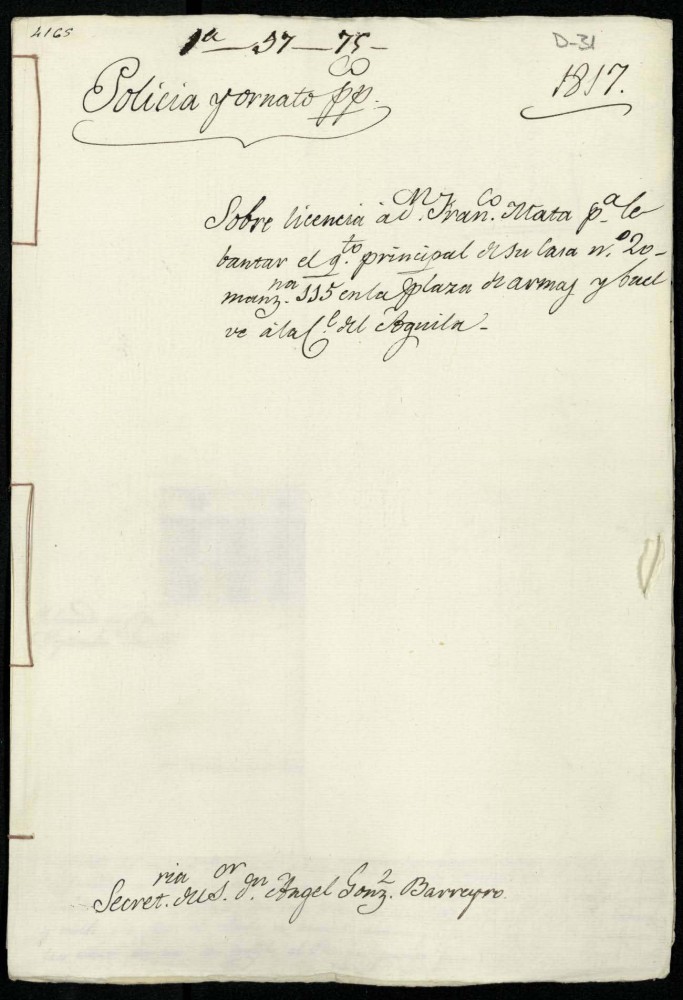 4165
1a — 57 — 75 –
D-31
Policia y ornato pp.co
1817.
Sobre licencia à Dn. Franco. Mata pa. le
bantar el qto. principal de su Casa n.º 20 –
manzna. 115 en la plaza de armas y buel
ve à la Ce. del Aguila –
Secretria. del Sor. Dn. Angel Gonz. Barreyro.